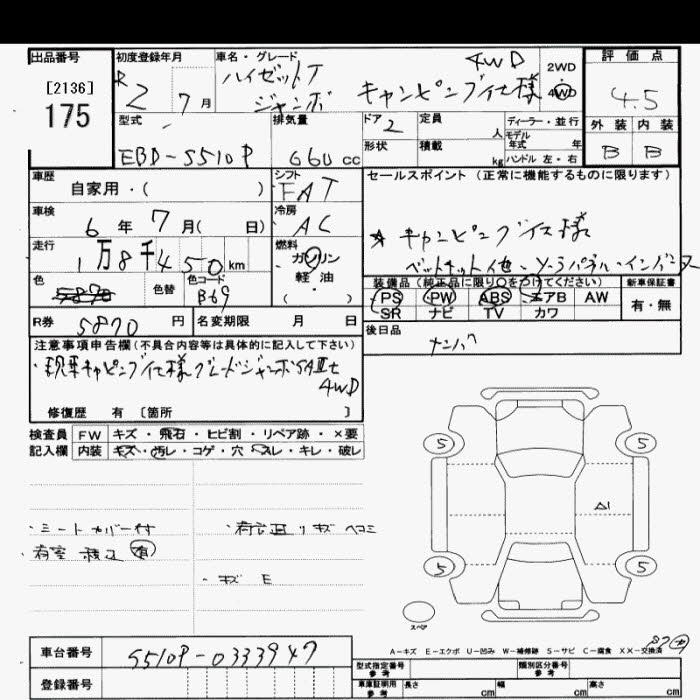 出品番号
[2136]
175
初度登録年月
R2 7月
車名・グレード
ハイゼットT
ジャンボ キャンピング仕様 4WD
2WD
4WD
評価点
4.5
外装 内装
B B
型式
EBD-S510P
排気量
660 cc
ドア 2
形状
定員 人
積載 kg
ディーラー・並行
モデル
年式 年
ハンドル 左・右
車歴
自家用・( )
シフト
FAT
車検
6年 7月( 日)
冷房
AC
走行
1万8千450km
燃料
ガソリン
軽油
( )
色
色替
色コード
B69
R券 5870円
名変期限 月 日
セールスポイント (正常に機能するものに限ります)
☆キャンピング仕様
装備品 (純正品に限り○をつけてください)
PS PW ABS エアB AW
SR ナビ TV カワ
新車保証書
有・無
後日品
ナンバー
注意事項申告欄(不具合内容等は具体的に記入して下さい)
・現車キャンピング仕様グレードジャンボSAⅢt
4WD
修復歴 有 〔箇所 〕
検査員 FW キズ・飛石・ヒビ割・リペア跡・×要
記入欄 内装 キズ・汚レ・コゲ・穴・スレ・キレ・破レ
・シートカバー付
・キズ E
5 5
A1
5 5
スペア
A-キズ E-エクボ U-凹み W-補修跡 S-サビ C-腐食 XX-交換済
車台番号 S510P-0333947
登録番号
型式指定番号
参考
類別区分番号
参考
車庫証明用
参考
長さ cm 幅 cm 高さ cm